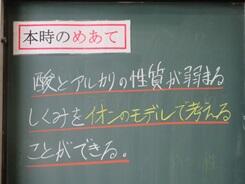 本時のめあて
酸とアルカリの性質が弱まる
しくみをイオンのモデルで考える
ことができる。